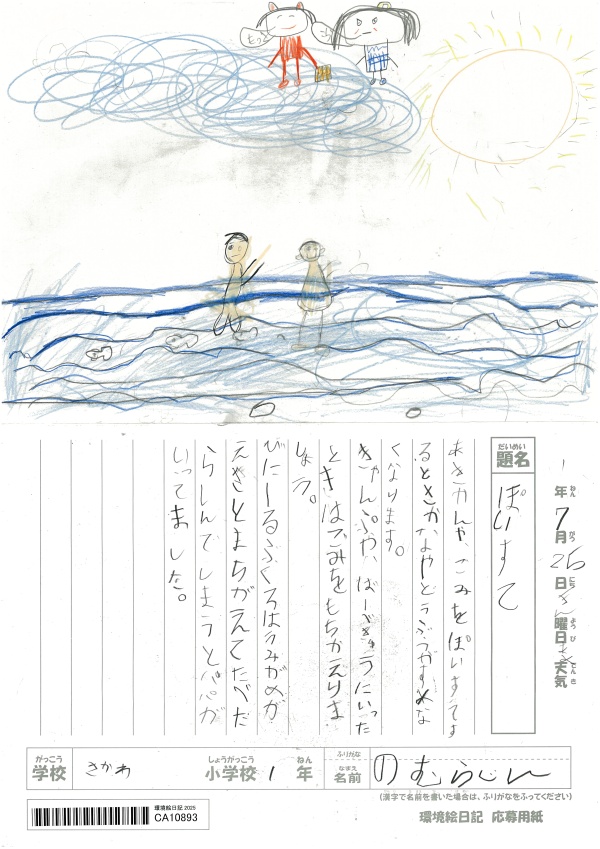 だいめい
題名
ぽいすて
1年7月26日きん曜日
天気
ねん
がつ
にち
ようび
てんき
あきかんや、ごみをぽいすてす
るとさかなやどうぶつがすめな
くなります。
きゃんぷや、ばーべきゅうにいった
ときはごみをもちかえりま
しょう。
びにーるぶくろはうみがめが
えさとまちがえてたべた
らしんでしまうとパパが
いってました。
がっこう
学校
さかわ
しょうがっこう
小学校
1
ねん
年
ふりがな
なまえ
名前
のむらじん
(漢字で名前を書いた場合は、ふりがなをふってください)
環境絵日記 2025
CA10893
環境絵日記 応募用紙